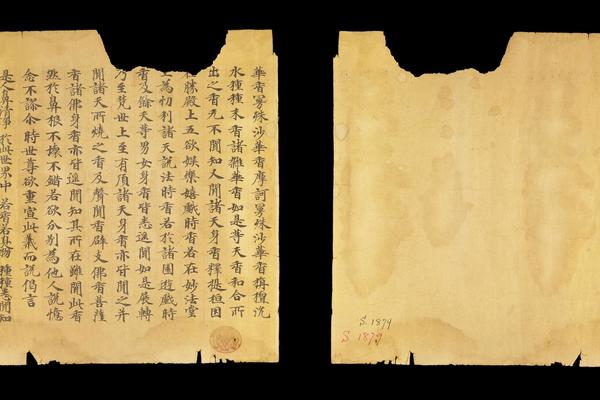 華香曼殊沙華香摩訶曼殊沙華香栴檀沉
水種種末香諸雜華香如是等天香和合所
出之香无不聞知又聞諸天身香釋提桓因
在勝殿上五欲娛樂嬉戲時香若在妙法堂
上為忉利諸天說法時香若於諸園遊戲時
香及餘天等男女身香皆悉遙聞如是展轉
乃至梵世上至有頂諸天身香亦皆聞之并
聞諸天所燒之香及聲聞香辟支佛香菩薩
香諸佛身香亦皆遙聞知其所在雖聞此香
然於鼻根不壞不錯若欲分別為他人說憶
念不謬尒時世尊欲重宣此義而說偈言
是人鼻清淨 於此世界中 若香若臭物 種種悉聞知
S. 1879
S 1879